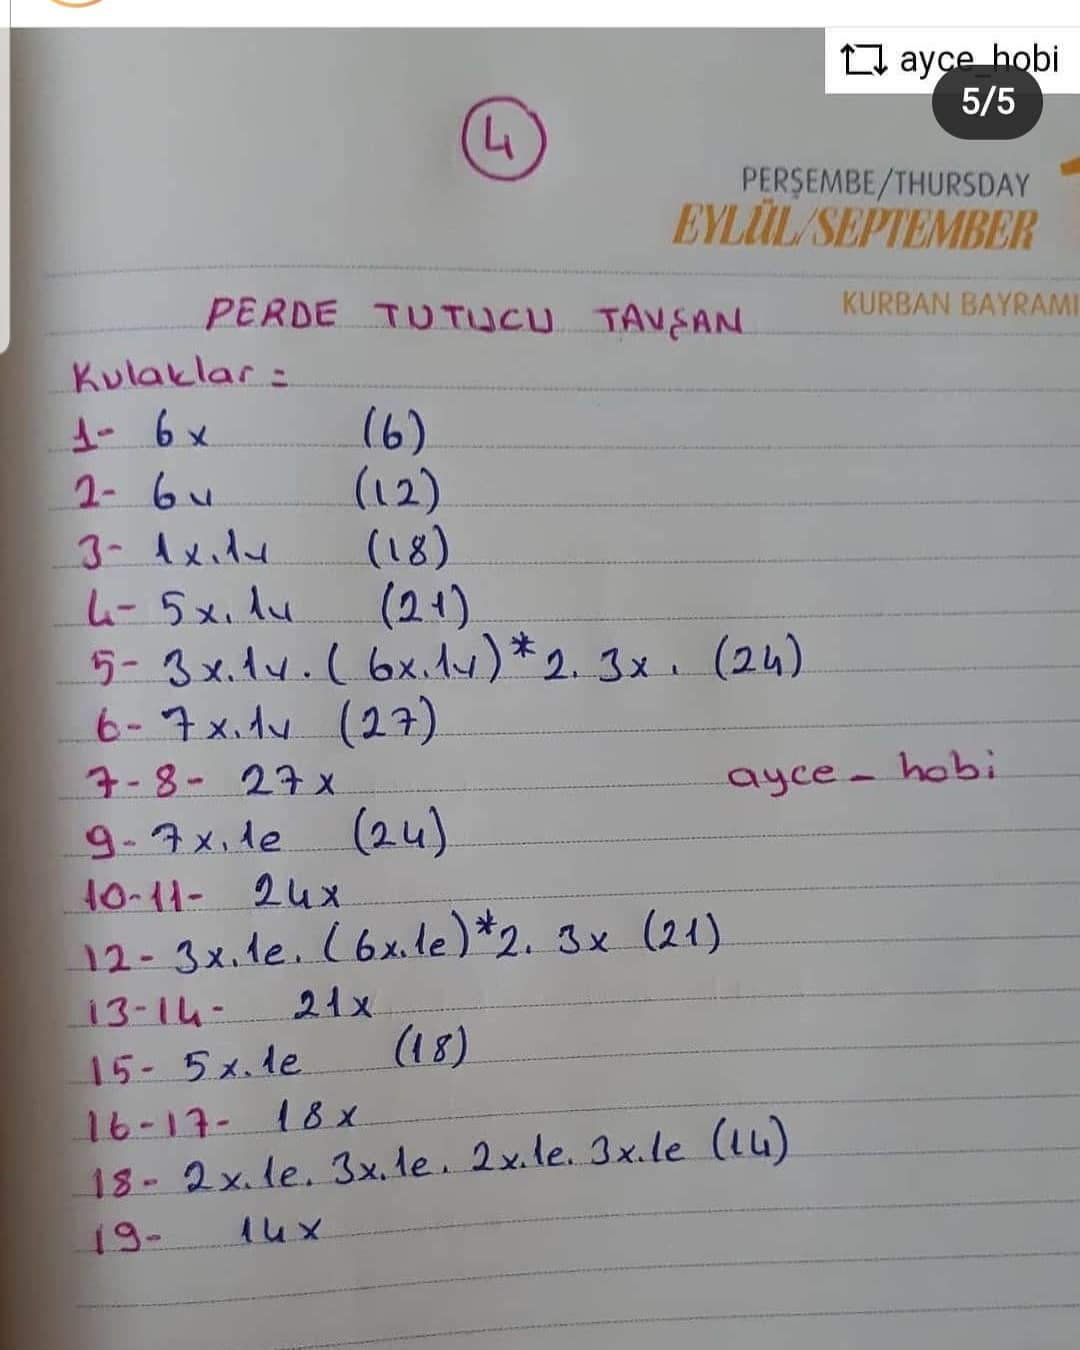 ayce_hobi
5/5
4
PERŞEMBE/THURSDAY
EYLÜL/SEPTEMBER
KURBAN BAYRAMI
PERDE TUTUCU TAVŞAN
Kulaklar =
1- 6x (6)
2- 6v (12)
3- 1x.1v (18)
4- 5x.1v (21)
5- 3x.1v.(6x.1v)*2.3x. (24)
6- 7x.1v (27)
7-8- 27x
ayce-hobi
9- 7x.1e (24)
10-11- 24x
12- 3x.1e.(6x.1e)*2.3x (21)
13-14- 21x
15- 5x.1e (18)
16-17- 18x
18- 2x.1e.3x.1e.2x.1e.3x.1e (14)
19- 14x